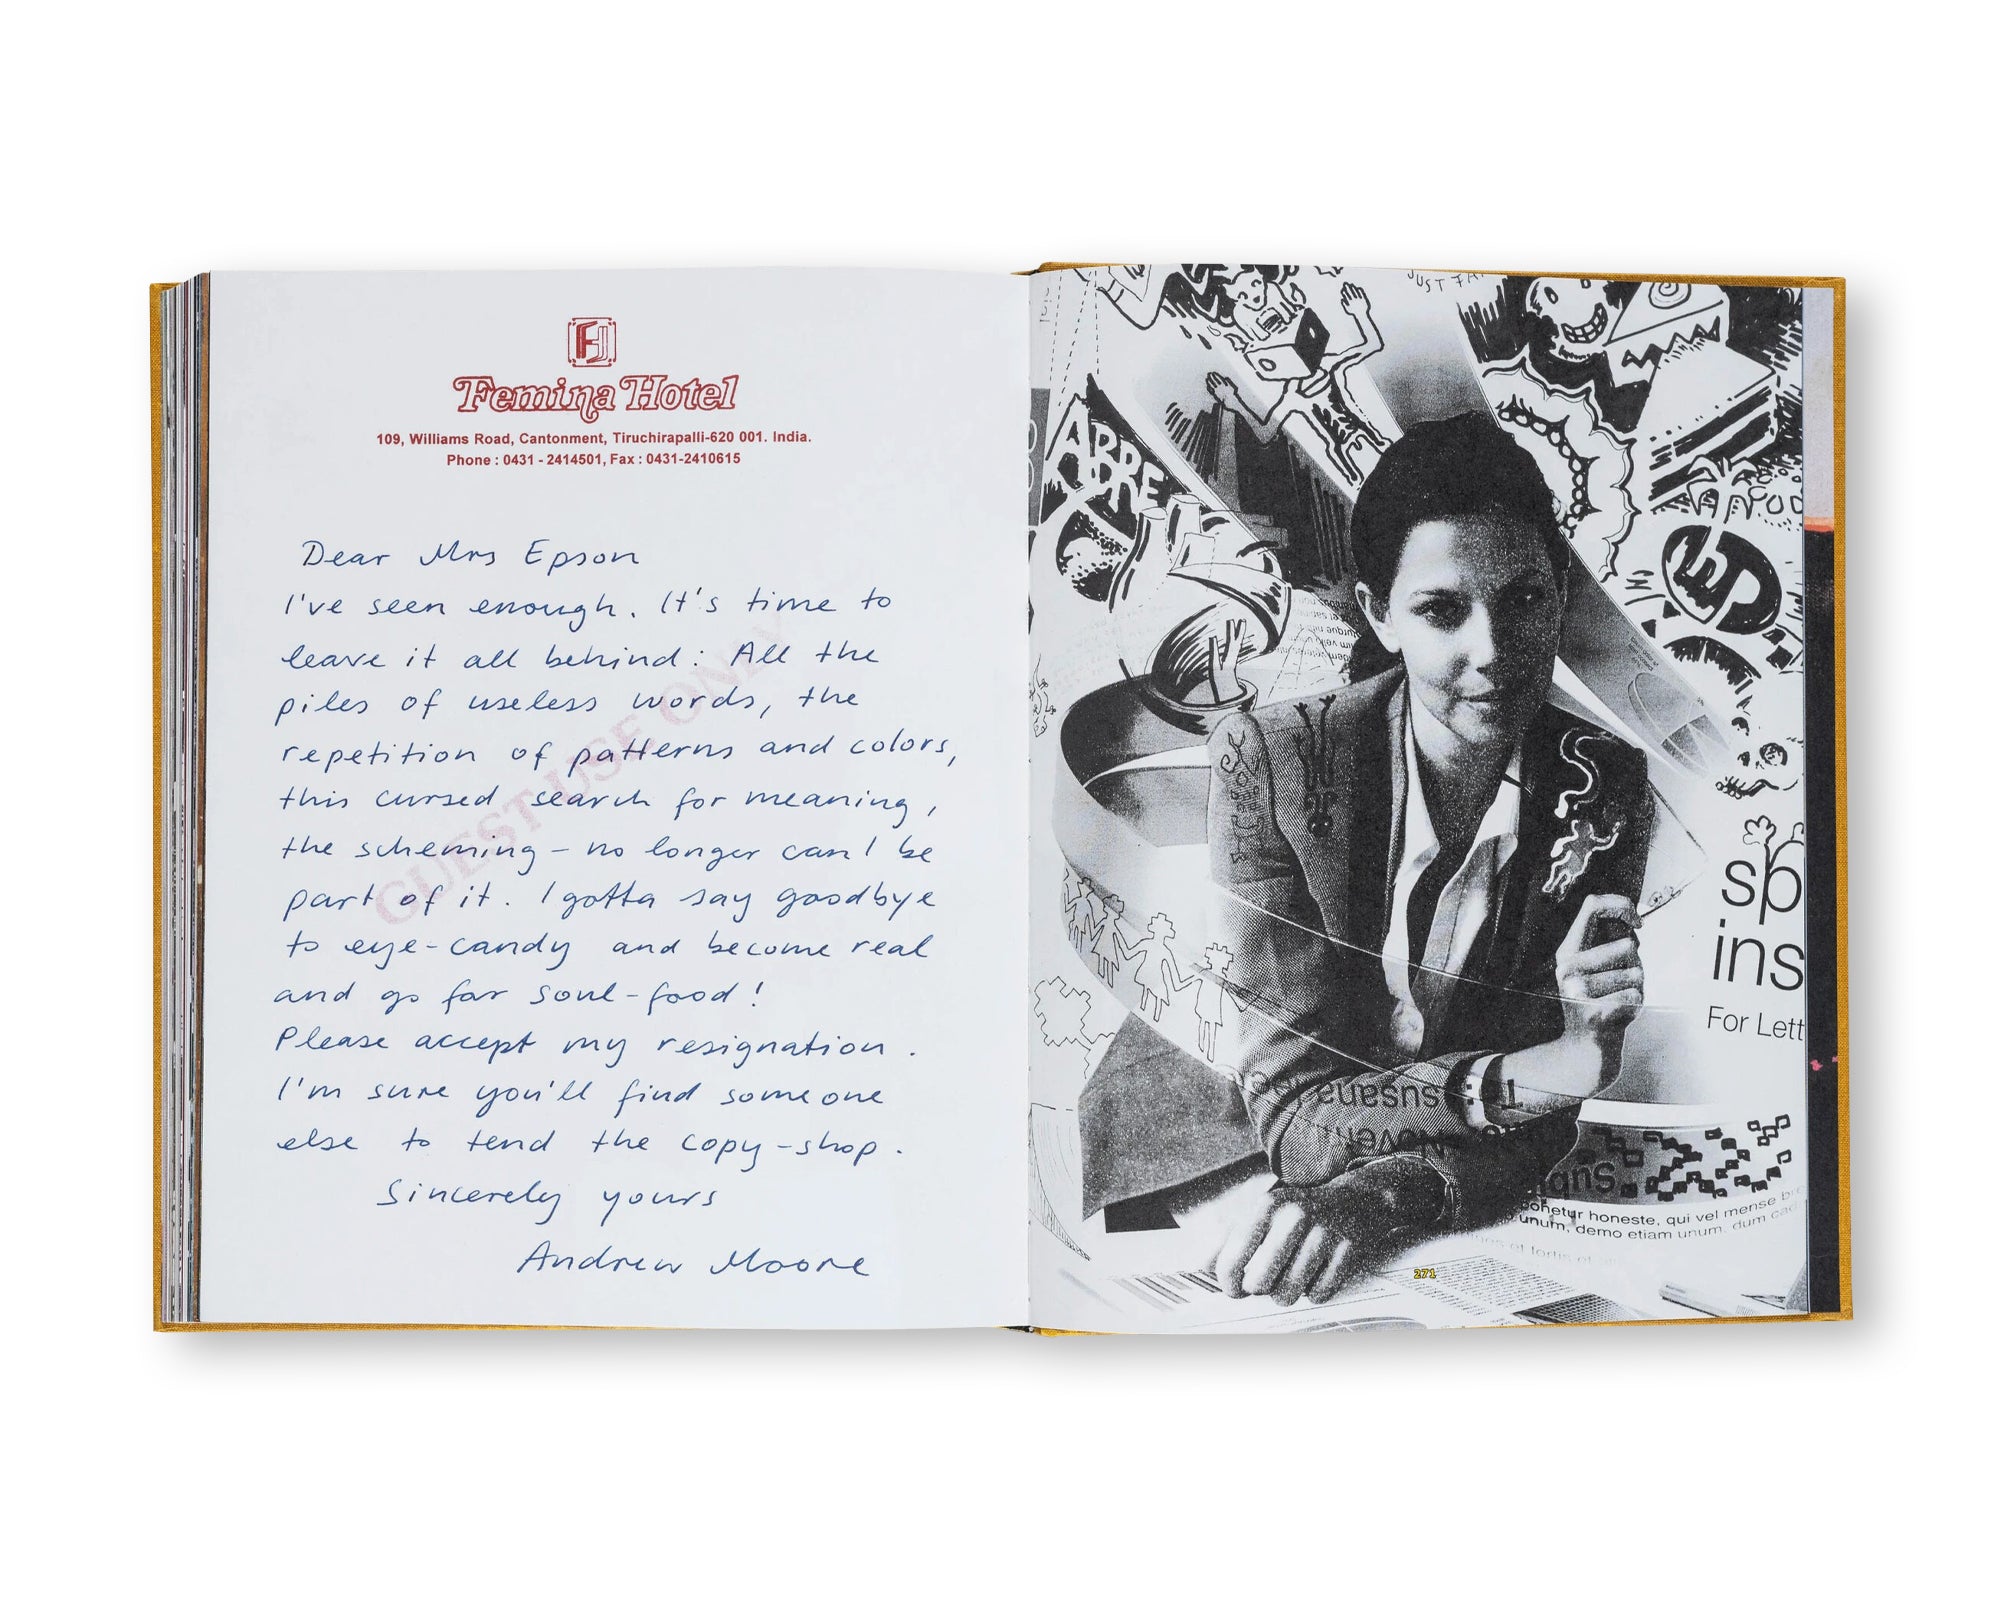 FJ
Femina Hotel
109, Williams Road, Cantonment, Tiruchirapalli-620 001. India.
Phone : 0431 - 2414501, Fax : 0431-2410615
GUEST USE ONLY
Dear Mrs Epson
I've seen enough. It's time to
leave it all behind: All the
piles of useless words, the
repetition of patterns and colors,
this cursed search for meaning,
the scheming – no longer can I be
part of it. I gotta say goodbye
to eye-candy and become real
and go for soul-food!
Please accept my resignation.
I'm sure you'll find someone
else to tend the copy-shop.
Sincerely yours
Andrew Moore
JUST
sp
ins
For Lett
honeste, qui vel mense
unum, demo etiam unum, dum
271